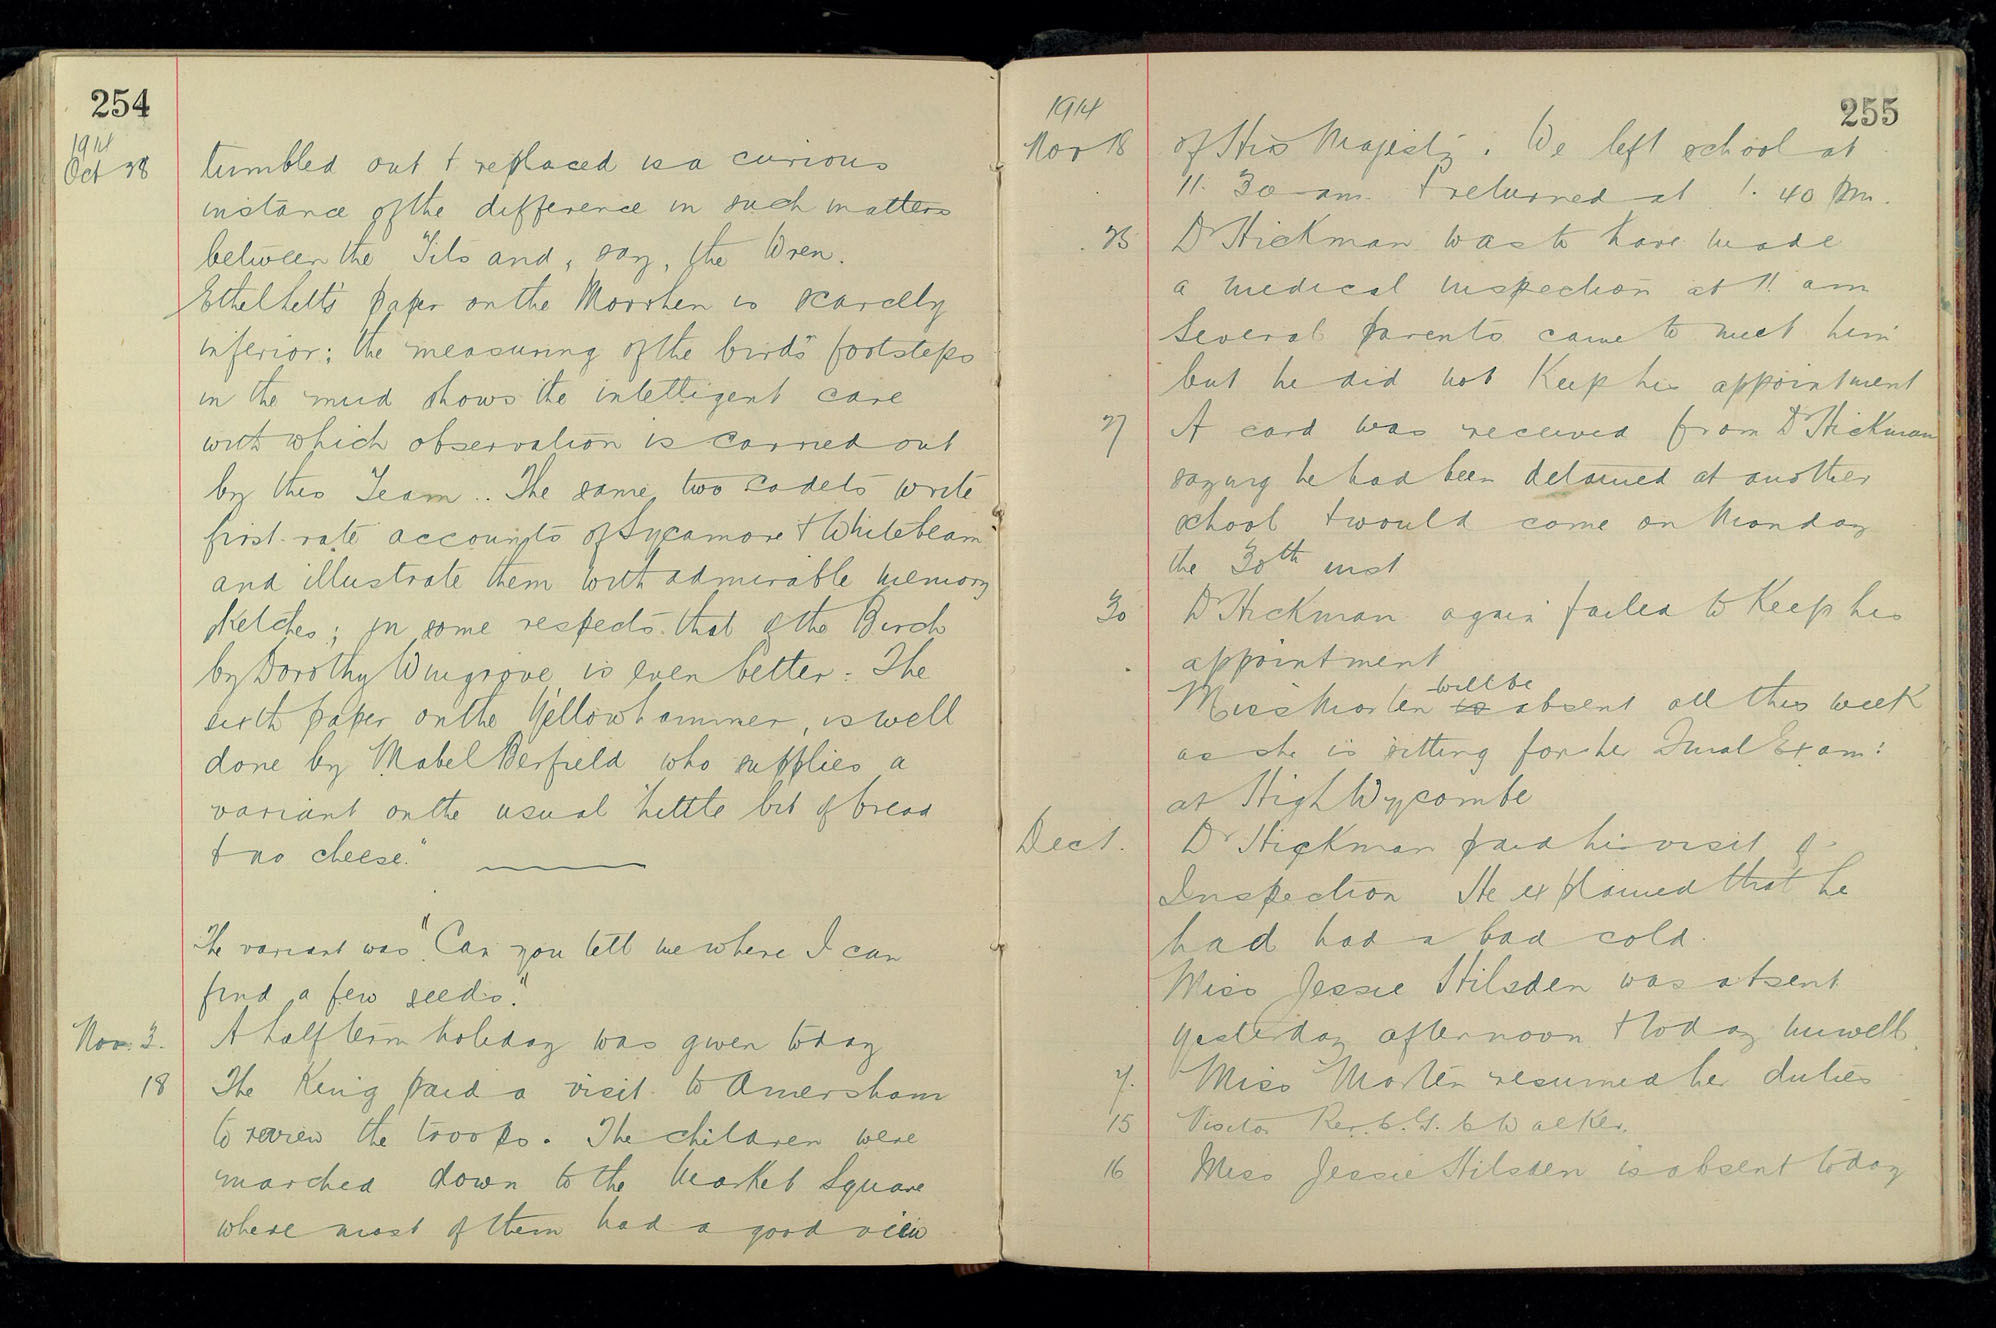 254
1914
Oct 28 tumbled out & replaced is a curious
instance of the difference in such matters
between the Tits and, say, the Wren.
Ethel Lett's paper on the Moorhen is scarcely
inferior; the measuring of the bird's footsteps
in the mud shows the intelligent care
with which observation is carried out
by this Team.. The same two Cadets write
first-rate accounts of Sycamore & Whitebeam
and illustrate them with admirable memory
sketches; in some respects that of the Birch
by Dorothy Wingrove is even better. The
sixth paper on the Yellowhammer, is well
done by Mabel Berfield who supplies a
variant on the usual "little bit of bread
& no cheese."
The variant was "Can you tell me where I can
find a few seeds."
Nov. 3. A half term holiday was given today
18 The King paid a visit to Amersham
to review the troops. The children were
marched down to the Market Square
where most of them had a good view
255
1914
Nov 18 of His Majesty. We left school at
11.30 am & returned at 1.40 pm.
25 Dr Hickman was to have made
a medical inspection at 11. am
Several parents came to meet him
but he did not keep his appointment
27 A card was received from Dr Hickman
saying he had been detained at another
school & would come on Monday
the 30th inst
30 Dr Hickman again failed to keep his
appointment
Miss Morten is will be absent all this week
as she is sitting for her Final Exam:
at High Wycombe
Dec 1. Dr Hickman paid his visit of
Inspection He explained that he
had had a bad cold.
Miss Jessie Hilsden was absent
yesterday afternoon & today unwell.
7. Miss Morten resumed her duties
15 Visitor Rev. Walker.
16 Miss Jessie Hilsden is absent today